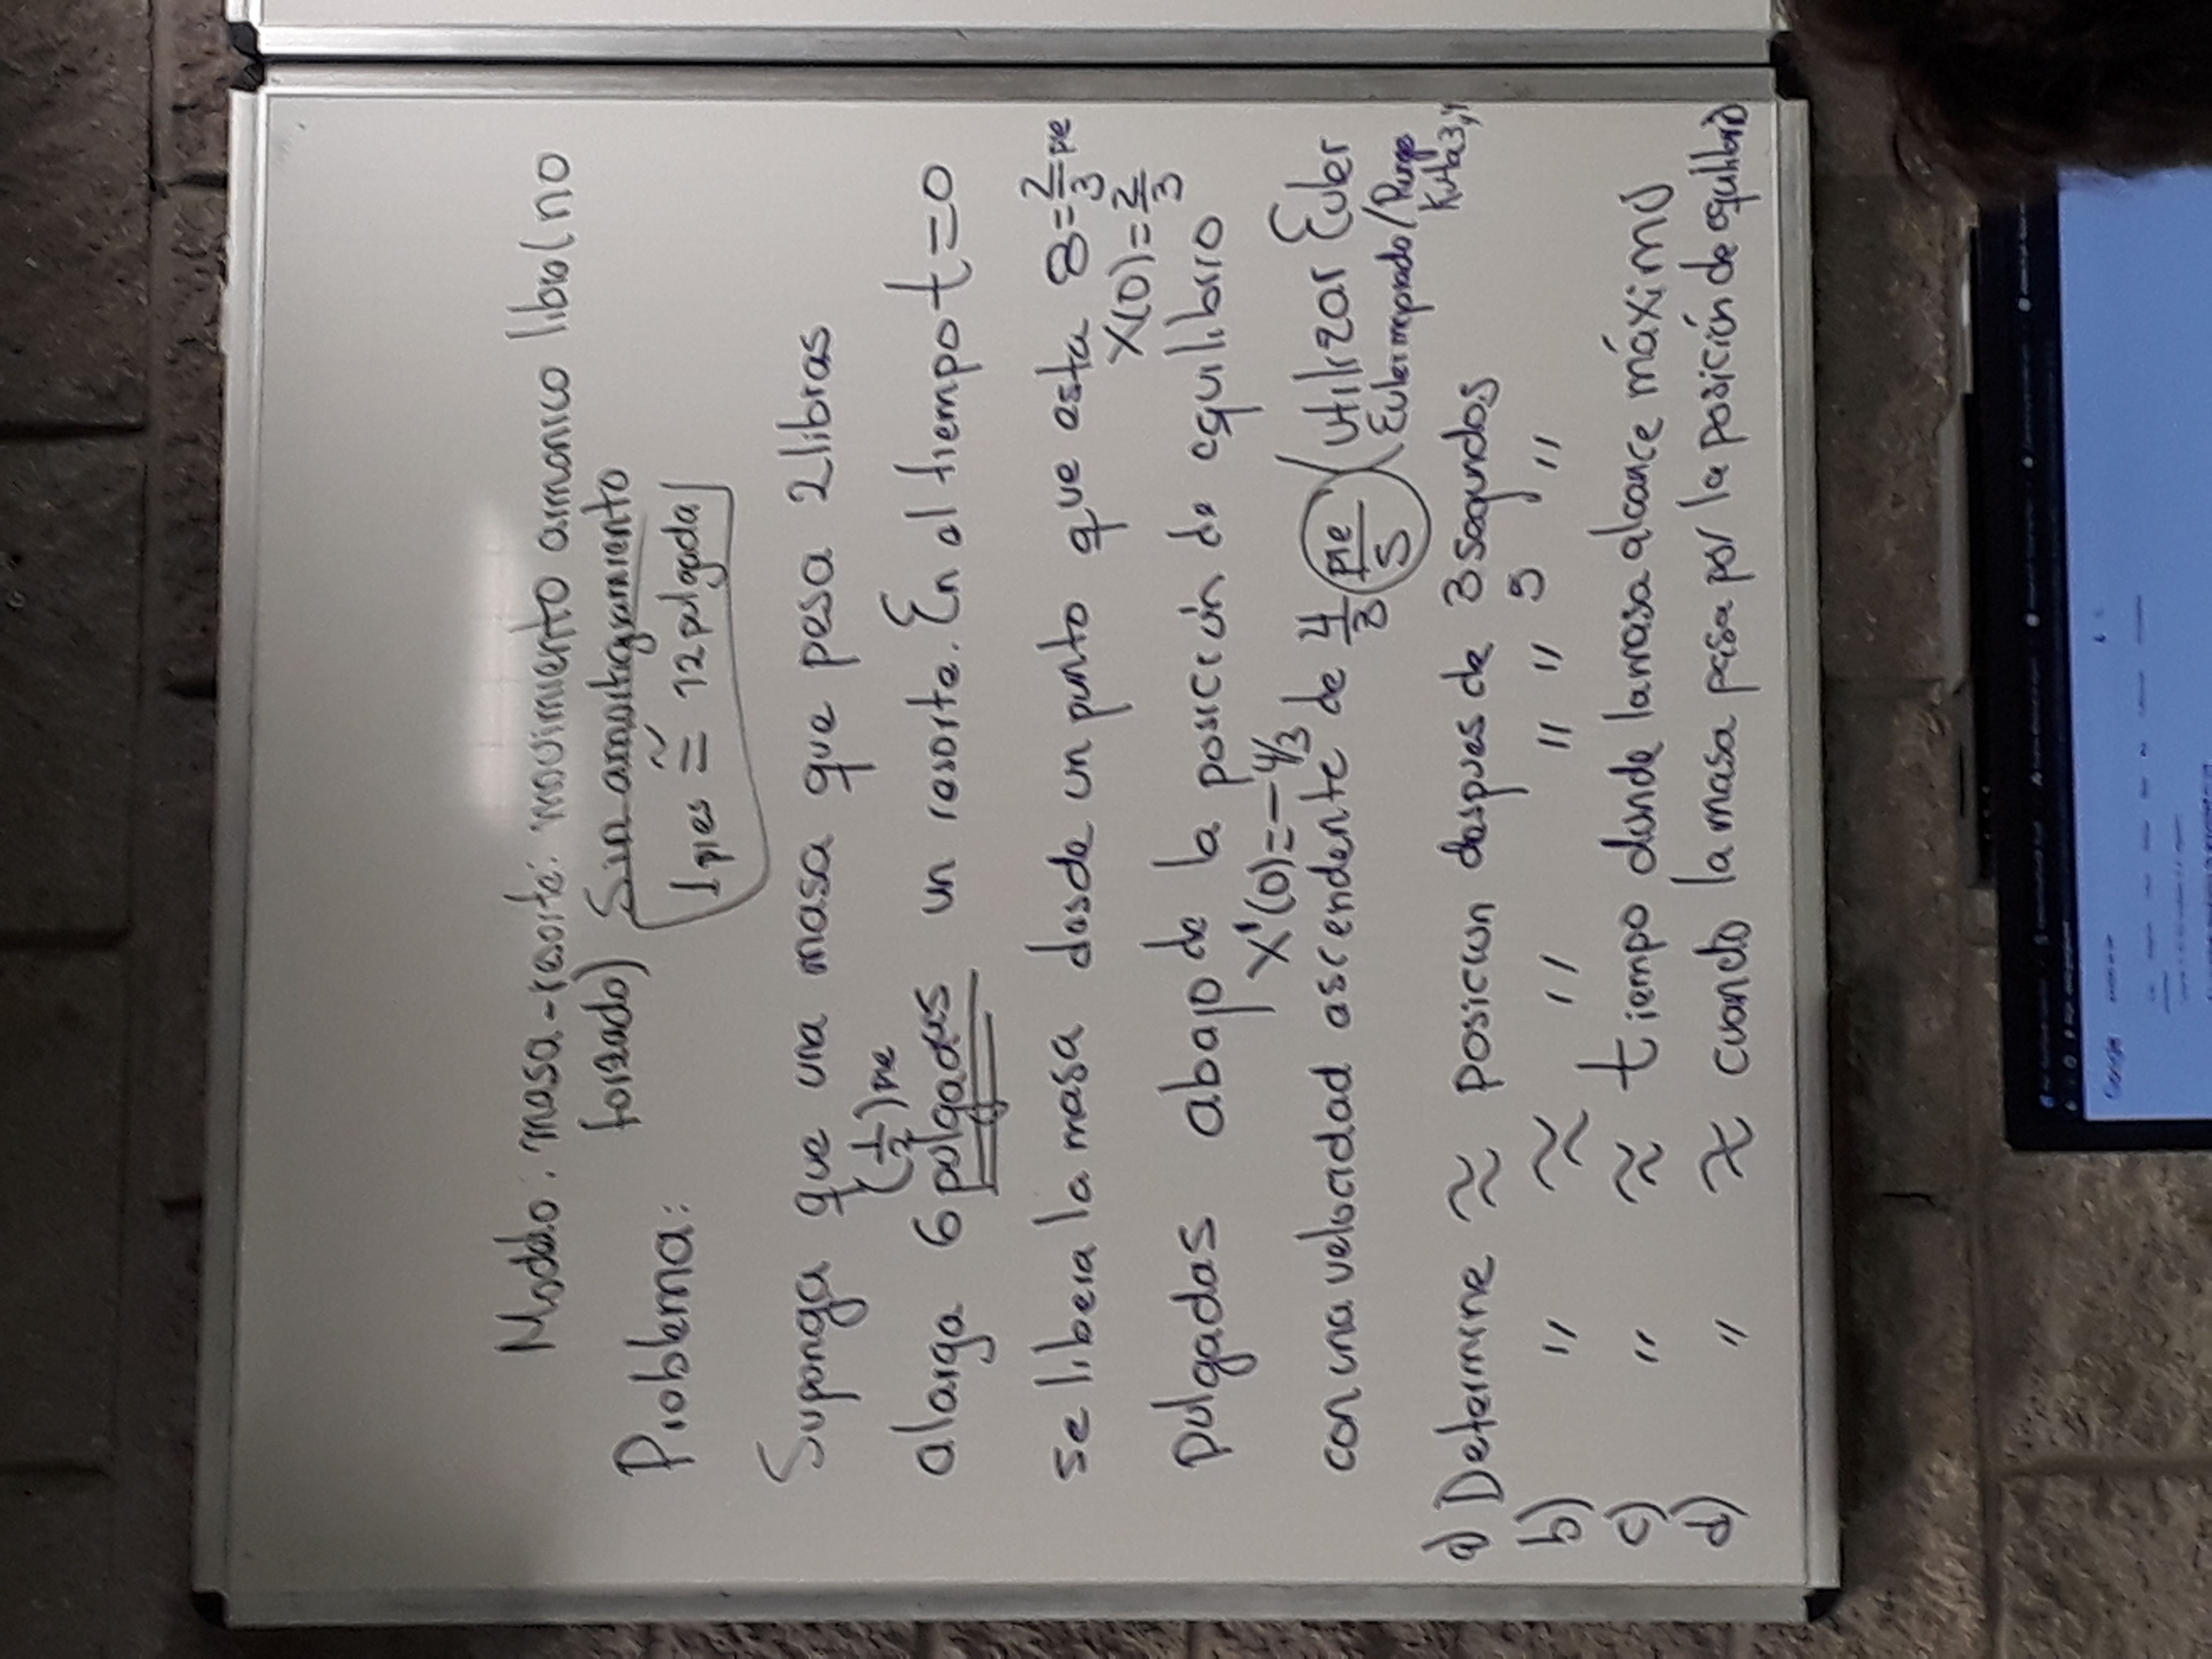 Modelo: masa-resorte: movimiento armonico libre (no
forzado) Sin amortiguamiento
Problema:
1 pies ≅ 12 pulgada
Suponga que una masa que pesa 2 libras
(1/2) pie
alarga 6 pulgadas un resorte. En el tiempo t=0
se libera la masa desde un punto que esta 8=2/3 pie
X(0)=2/3
pulgadas abajo de la posición de equilibrio
X'(0)=-4/3
con una velocidad ascendente de 4/3 pie/s (utilizar Euler
Euler mejorado / Runge
Kutta 3,4
a) Determine ≈ posicion despues de 3 segundos
b) " ≈ " " " 5 "
c) " ≈ tiempo donde la masa alcance máximo
d) " ≈ cuando la masa pasa por la posición de equilibrio
Google